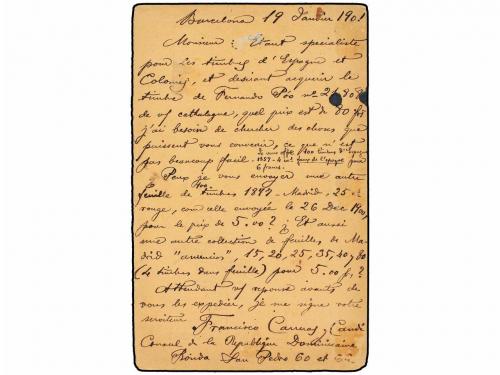 Barcelona 19 Janvier 1901
Monsieur: Etant specialiste
pour les timbres d'Espagne et
Colonies, et desirant acquerir le
timbre de Fernando Póo nº
de vf cathalogue, quel prix est de 80 frs
j'ai besoin de chercher des choses que
puissent vous convenir, ce que n'est
pas beaucoup facil.
6 francs.
Peux je vous envoyer une autre
feuille de timbres Madrid, 25
rouge, com celle envoyée le 26 Dec 1900,
pour le prix de 5.00? Et aussi
une autre collection de feuilles de Ma-
drid "anuncios", 15, 20, 25, 35, 40, 80
(4 timbres dans feuille) pour 5.00 fs?
Attendant vf reponse avants de
vous les expedier, je me signe votre
serviteur
Francisco Carreras Candi
Consul de la Republique Dominicaine
Ronda San Pedro 60 et